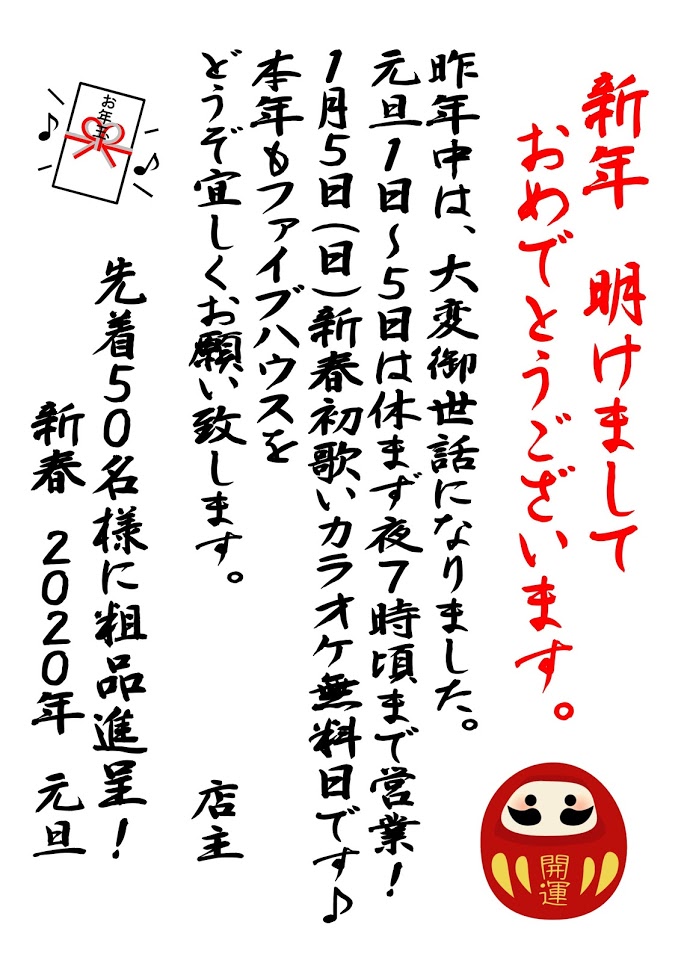 新年　明けまして
おめでとうございます。
昨年中は、大変御世話になりました。
元旦1日～5日は休まず夜7時頃まで営業！
1月5日(日)新春初歌いカラオケ無料日です♪
本年もファイブハウスを
どうぞ宜しくお願い致します。　店主
先着50名様に粗品進呈！
新春　2020年　元旦
お年玉
開運